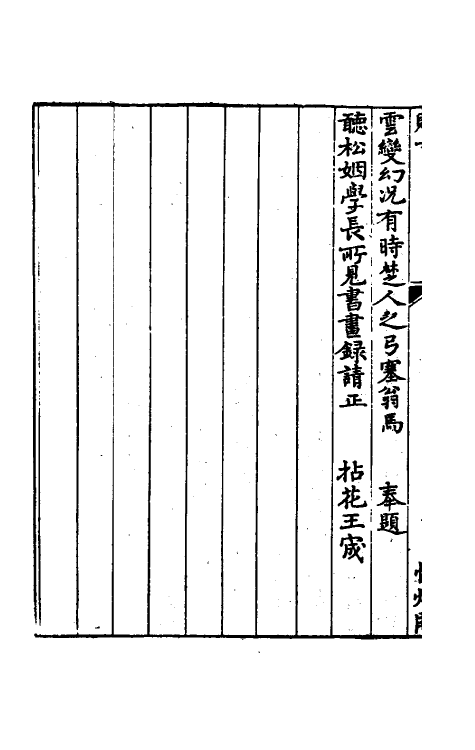 雲變幻況有時楚人之弓塞翁馬　奉題
聽松姻學長所見書畫錄請正　拈花王宬